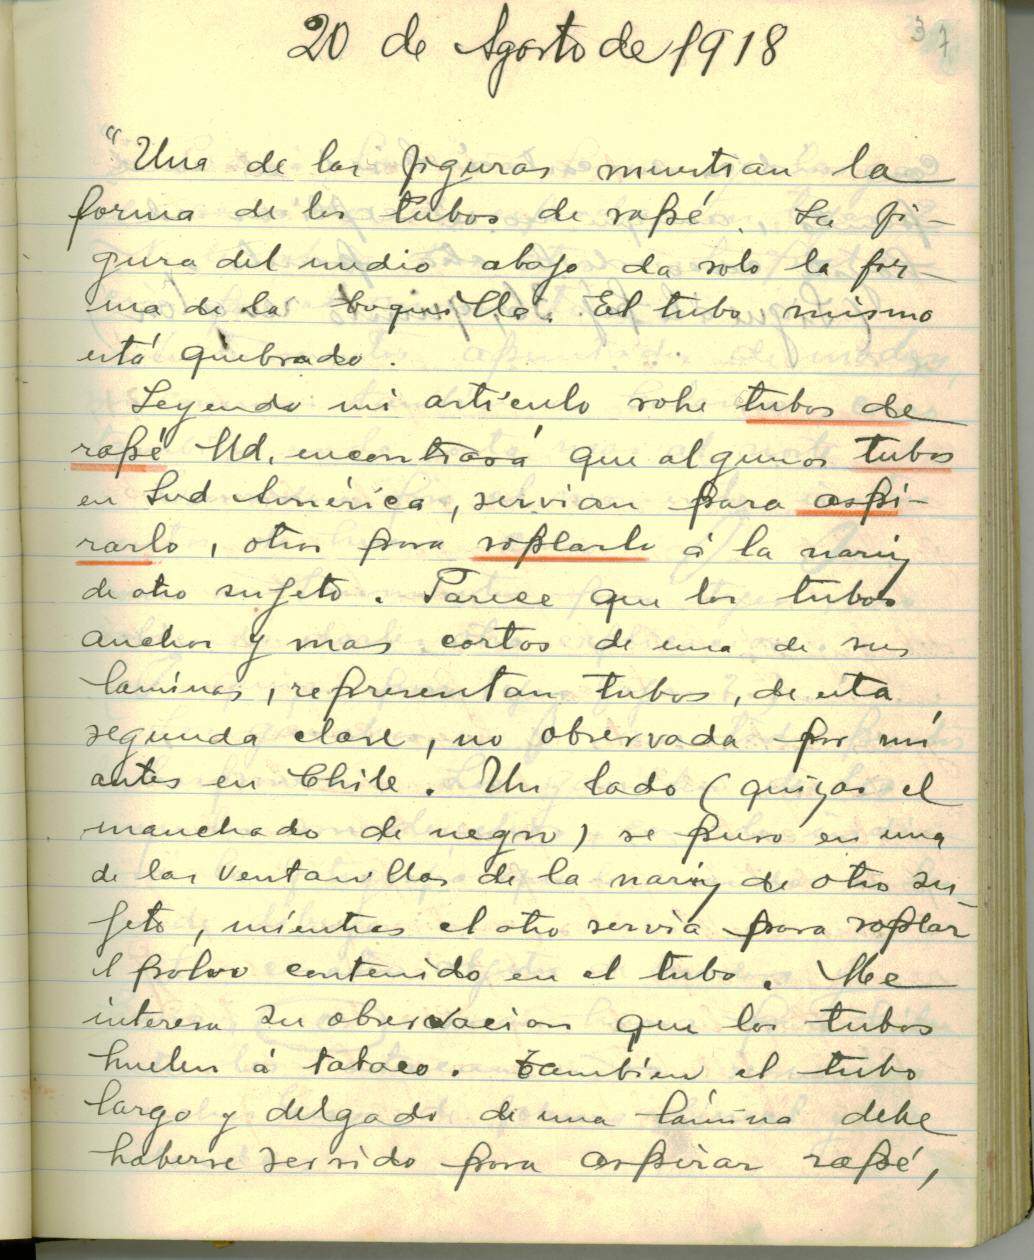 20 de Agosto de 1918
37
"Una de las figuras muestran la
forma de los tubos de rapé. La fi-
gura del medio abajo da solo la for-
ma de la boquilla. El tubo mismo
está quebrado.
Leyendo mi artículo sobre tubos de
rapé Ud. encontrará que algunos tubos
en Sud América, servian para aspi-
rarlo, otros para soplarlo á la nariz
de otro sujeto. Parece que los tubos
anchos y mas cortos de una de sus
laminas, representan tubos, de esta
segunda clase, no observada por mí
antes en Chile. Un lado (quizas el
manchado de negro) se puso en una
de las ventanillas de la nariz de otro su-
jeto, mientras el otro servia para soplar
el polvo contenido en el tubo. Me
interesa su observacion que los tubos
huelen á tabaco. Tambien el tubo
largo y delgado de una lámina debe
haberse servido para aspirar rapé,